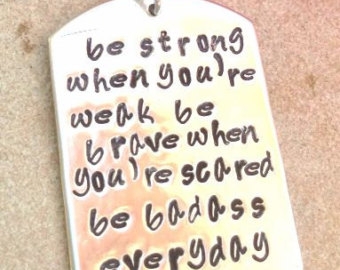 be strong
when you're
weak be
brave when
you're scared
be badass
everyday